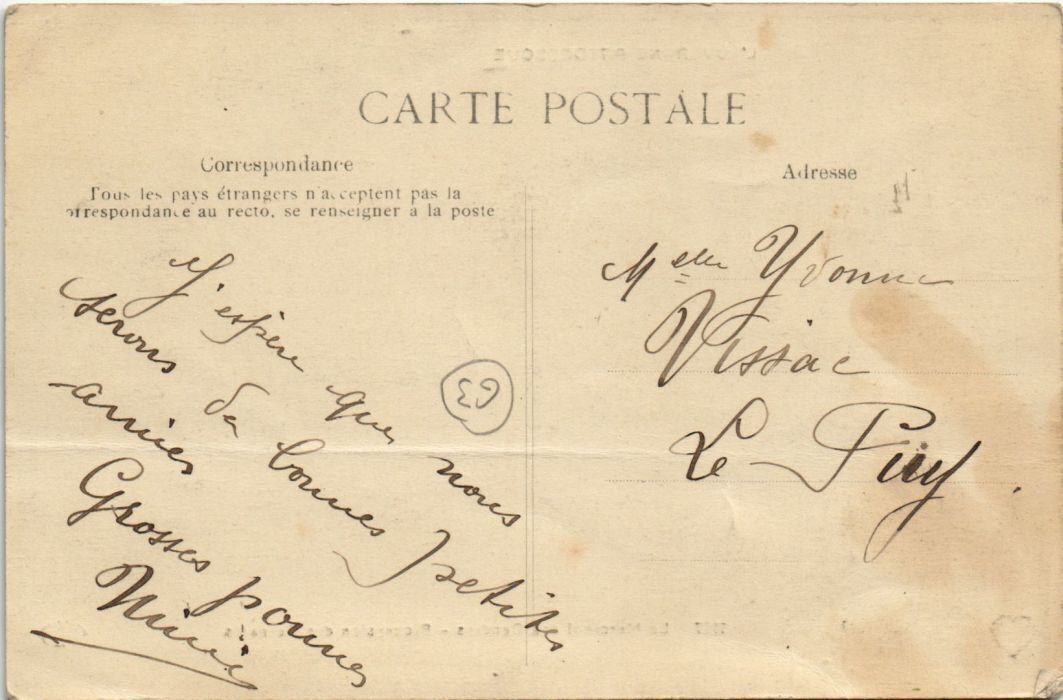 CARTE POSTALE
Correspondance
Tous les pays étrangers n'acceptent pas la
correspondance au recto, se renseigner à la poste
J'espère que nous
serons de bonnes petites
amies
Grosses
Mimi
63
Adresse
Melle Yvonne
Vissac
Le Puy.